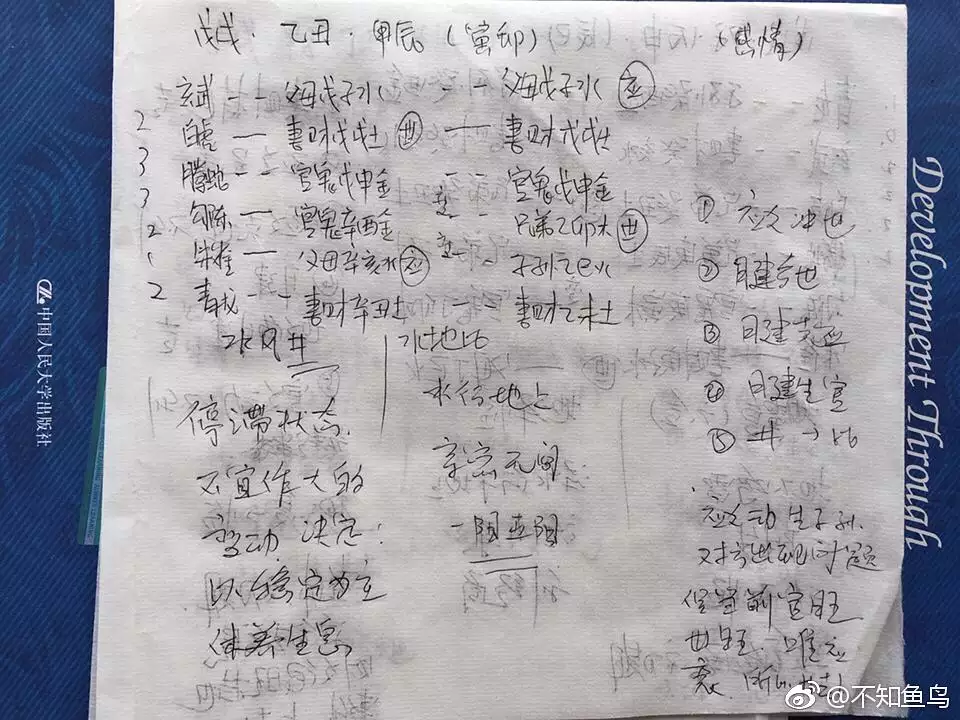 戊戌·乙丑·甲辰(寅卯) (感情)
玄武 -- 父母戊子水 -- 父母戊子水 应
2 白虎 — 妻財戊戌土 世 — 妻財戊戌土
3 腾蛇 -- 官鬼戊申金 -- 官鬼戊申金
3 勾陈 — 官鬼辛酉金 -- 兄弟乙卯木 世
2 朱雀 — 父母辛亥水 应 -- 子孙乙巳火
2 青龙 -- 妻財辛丑土 — 妻財乙未土
水风井
水地比
停滞状态.
不宜作大的
变动 决定:
以稳定为主
休养生息
水行地上
亲密无间
① 应爻冲世
② 日建合世
③ 日建克应
④ 日建生官
⑤ 井→比
应爻动
官旺
世旺. 唯应
衰.
中国人民大学出版社
Development Through
@不知鱼鸟